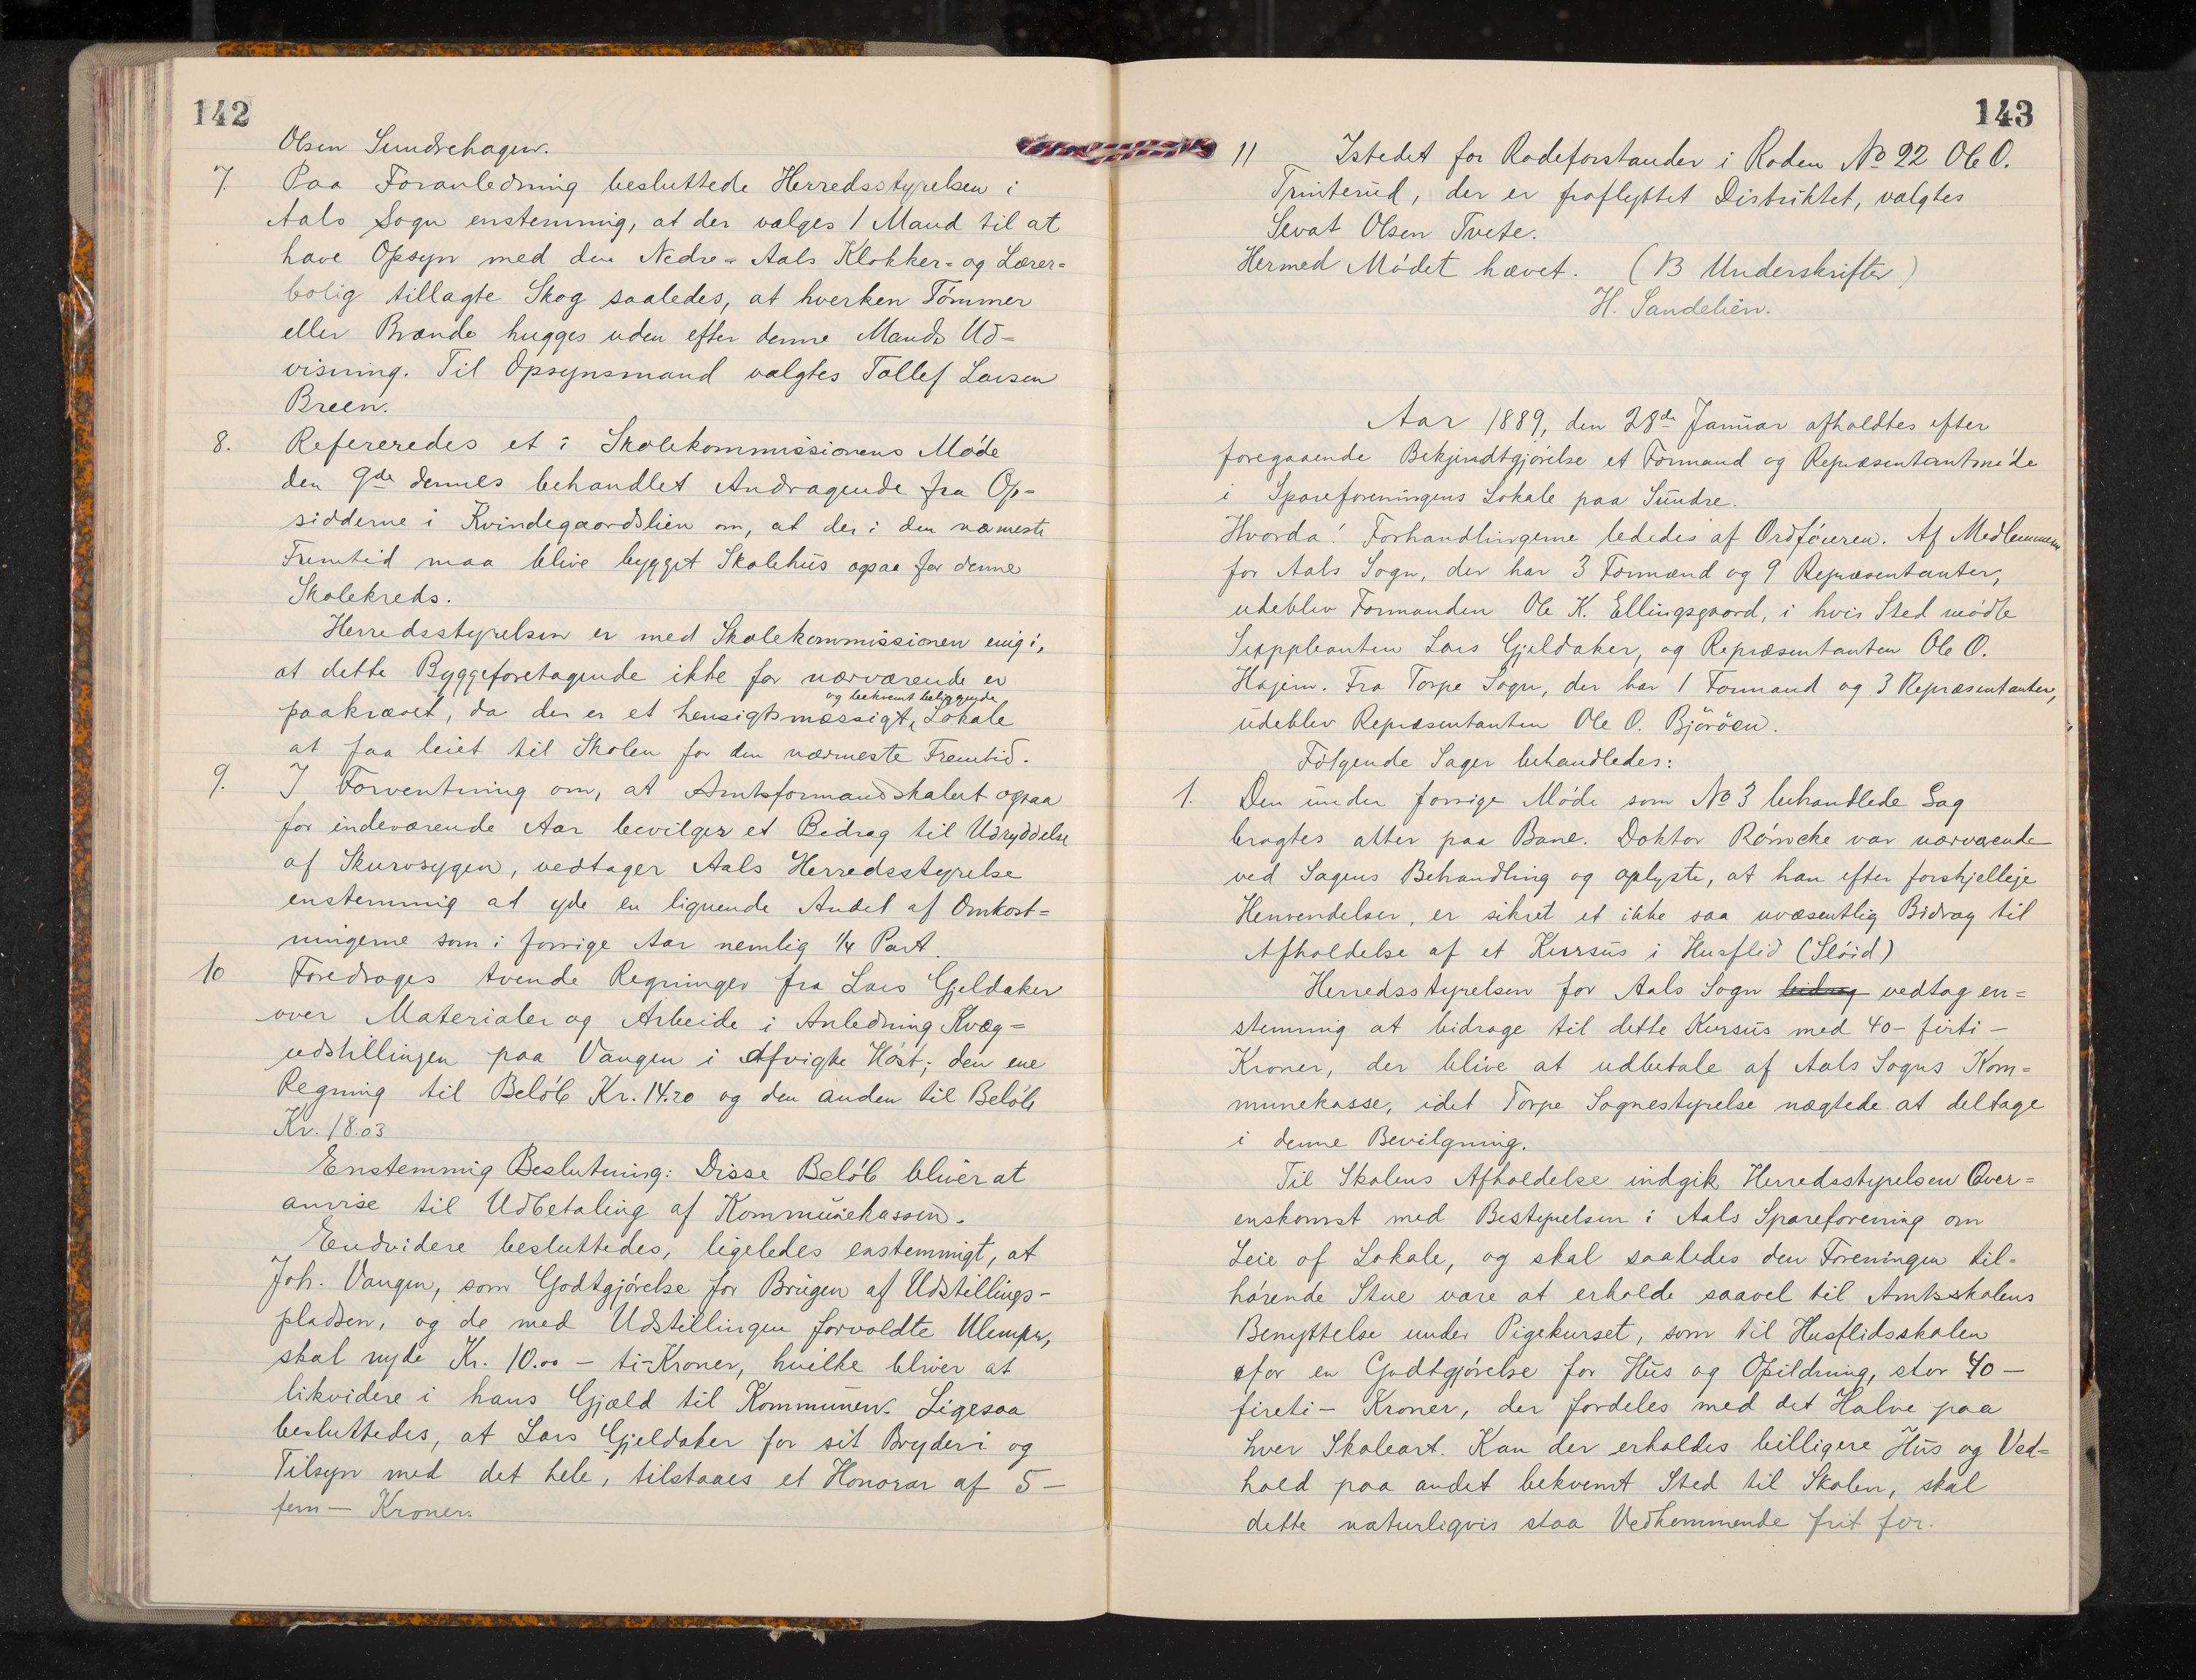 142
Olsen Sundrehagen.
7. Paa Foranledning besluttede Herredsstyrelsen i
Aals Sogn enstemmig, at der vælges 1 Mand til at
have Opsyn med den Nedre-Aals Klokker- og Lærer-
bolig tillagte Skog saaledes, at hverken Tómmer
eller Brænde hugges uden efter denne Mands Ud-
visning. Til Opsynsmand valgtes Tollef Larsen
Breen.
8. Refereredes et i Skolekommissionens Móde
den 9de dennes behandlet Andragende fra Op-
sidderne i Kvindegaardslien om, at der i den nærmeste
Fremtid maa blive bygget Skolehus ogsaa for denne
Skolekreds.
Herredsstyrelsen er med Skolekommissionen enig i,
at dette Byggeforetagende ikke for nærværende er
og bekvemt beliggende
paakrævet, da der er et hensigtsmæssigt, Lokale
at faa leiet til Skolen for den nærmeste Fremtid.
9. I Forventning om, at Amtsformandskabet ogsaa
for indeværende Aar bevilger et Bidrag til Udryddelse
af Skurvsygen, vedtager Aals Herredsstyrelse
enstemmig at yde en lignende Andel af Omkost-
ningerne som i forrige Aar nemlig 1/4 Part.
10 Foredroges tvende Regninger fra Lars Gjeldaker
over Materialer og Arbeide i Anledning Kvæg-
udstillingen paa Vangen i Afvigte Hóst; den ene
Regning til Belób Kr. 14.20 og den anden til Belób
Kr. 18.03
Enstemmig Beslutning: Disse Belób bliver at
anvise til Udbetaling af Kommunekassen.
Endvidere besluttedes, ligeledes enstemmigt, at
Joh. Vangen, som Godtgjórelse for Brugen af Udstillings-
pladsen, og de med Udstillingen forvoldte Ulemper,
skal nyde Kr. 10.00 - ti-Kroner, hvilke bliver at
likvidere i hans Gjæld til Kommunen. Ligesaa
besluttedes, at Lars Gjeldaker for sit Bryderi og
Tilsyn med det hele, tilstaaes et Honorar af 5 -
fem - Kroner.
143
11 Istedet for Rodeforstander i Roden No 22 Ole O.
Trinterud, der er fraflyttet Distriktet, valgtes
Sevat Olsen Tvete.
Hermed Módet hævet. (13 Underskrifter)
H. Sandelien.
Aar 1889, den 28de Januar afholdtes efter
foregaaende Bekjendtgjórelse et Formand og Repræsentantmóde
i Spareforeningens Lokale paa Sundre.
Hvorda! Forhandlingerne lededes af Ordfóreren. Af Medlemmerne
for Aals Sogn, der har 3 Formænd og 9 Repræsentanter,
udeblev Formanden Ole K. Ellingsgaard, i hvis Sted módte
Suppleanten Lars Gjeldaker, og Repræsentanten Ole O.
Hajem. Fra Torpe Sogn, der har 1 Formand og 3 Repræsentanter,
udeblev Repræsentanten Ole O. Björöen.
Fólgende Sager behandledes:
1. Den under forrige Móde som No 3 behandlede Sag
bragtes atter paa Bane. Doktor Rómcke var nærværende
ved Sagens Behandling og oplyste, at han efter forskjellige
Henvendelser, er sikret et ikke saa uvæsentlig Bidrag til
Afholdelse af et Kursus i Husflid (Slóid)
Herredsstyrelsen for Aals Sogn bidrag vedtog en-
stemmig at bidrage til dette Kursus med 40 - firti -
Kroner, der blive at udbetale af Aals Sogns Kom-
munekasse, idet Torpe Sognestyrelse nægtede at deltage
i denne Bevilgning.
Til Skolens Afholdelse indgik Herredsstyrelsen Over-
enskomst med Bestyrelsen i Aals Spareforening om
Leie af Lokale, og skal saaledes den Foreningen til-
hórende Stue være at erholde saavel til Amtsskolens
Benyttelse under Pigekurset, som til Husflidsskolen
for en Godtgjórelse for Hus og Opildning, stor 40 -
fireti - Kroner, der fordeles med det Halve paa
hver Skoleart. Kan der erholdes billigere Hus og Ved-
hold paa andet bekvemt Sted til Skolen, skal
dette naturligvis staa Vedkommende frit for.